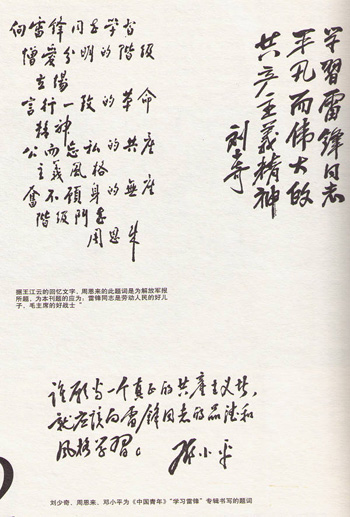 向雷锋同志学習
憎爱分明的階級
立場
言行一致的革命
精神
公而忘私的共產
主義風格
奮不顧身的無產
階級鬥志
周恩来
学習雷锋同志
平凡而伟大的
共产主義精神
刘少奇
据王江云的回忆文字，周恩来的此题词是为解放军报
所题，为本刊题的应为：雷锋同志是劳动人民的好儿
子，毛主席的好战士”
谁愿当一个真正的共產主义者，
就应该向雷锋同志的品德和
风格学習。
邓小平
刘少奇、周恩来、邓小平为《中国青年》“学习雷锋”专辑书写的题词